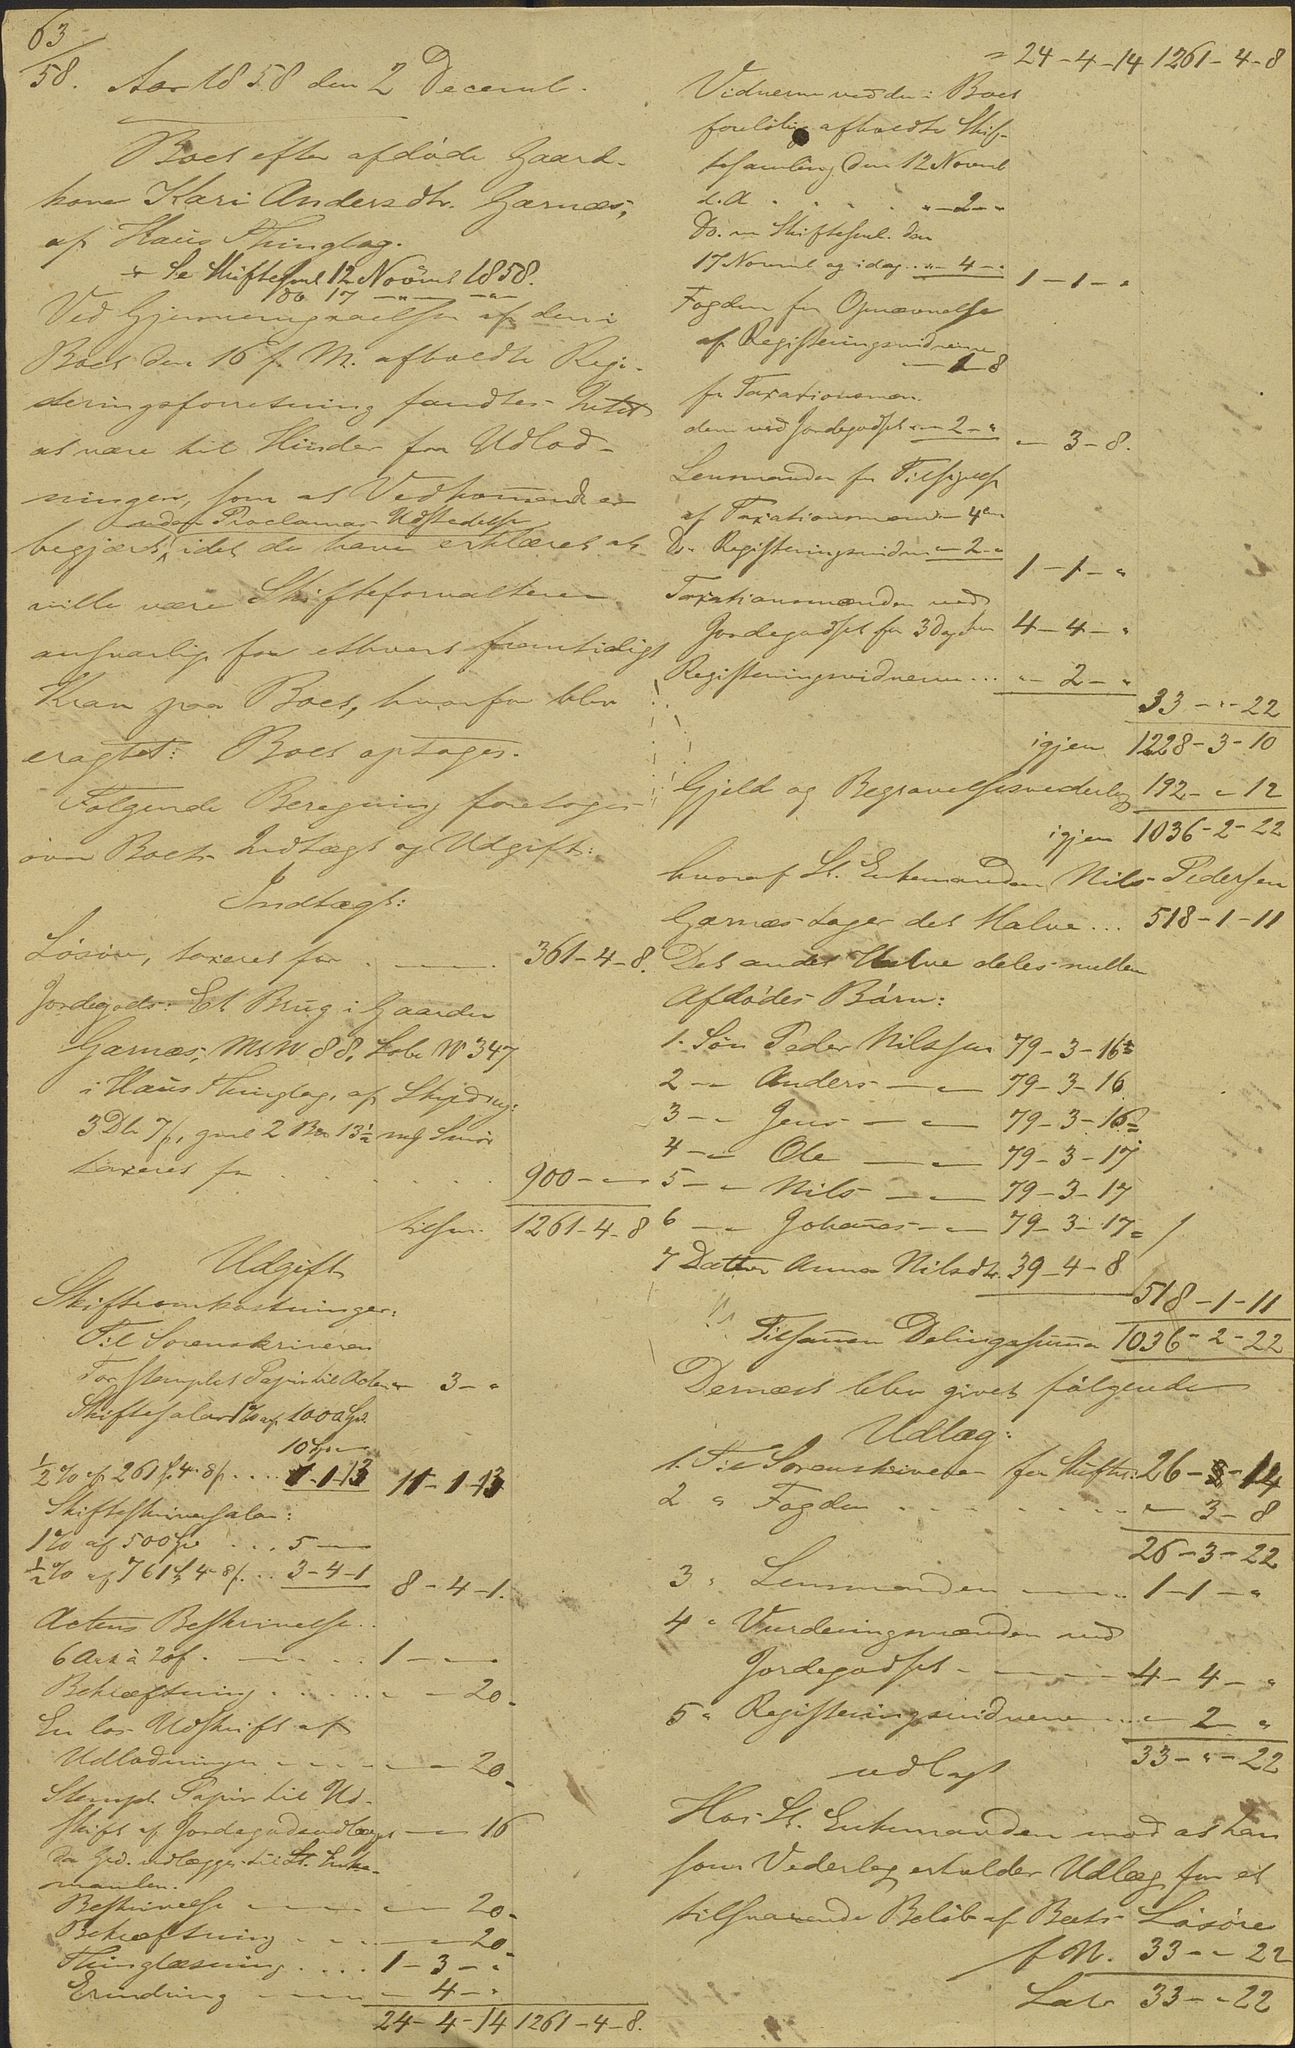 63
58. Aar 1858 den 2 Decemb.
Boet efter afdöde Gaard-
kone Kari Andersdtr. Garnæs,
af Haus Thinglag.
+ Se Skiftesml 12 Novemb 1858.
do 17 — " — " —
Ved Gjennemgaaelsen af den i
Boet den 16 f. M. afholdte Regi-
steringsforretning fandtes Intet
at være til Hinder for Udlod-
ningen, som af Vedkommende er
uden Proclamas Udstedelse
begjært, idet de have erklæret at
ville være Skifteforvalteren
ansvarlig for ethvert fremtidigt
Krav paa Boet, hvorfor blev
eragtet: Boet optages.
Følgende Beregning foretoges
over Boets Indtægt og Udgift:
Indtægt:
Løsøre, taxeret for . — . 361-4-8.
Jordegods: Et Brug i Gaarden
Garnæs, Mt N 88, Löbe N 347
i Haus Thinglag, af Skyld ny:
3 Dlr 7 s, gml 2 13½ mk Smör
taxeret for . . . . . 900 - — -
tilsm. 1261-4-8
Udgift
Skifteomkostninger:
Til Sorenskriveren
For stemplet Papir til Acten - 3 - "
Skiftesalar 1% af 1000 Spd.
10 Spd —
½% af 261 s. 4-8 s. . . . 1-1-13 11-1-13
Skifteskriversalar:
1% af 500 Spd . . . 5 - —
½% af 761 s 4-8 s. . . 3-4-1 8-4-1.
Actens Beskrivelse . .
6 Ark à 20 s. — . . . 1 - — -
Bekræftning . . . . . - 20 -
En løs Udskrift af
Udlodningen - — - — 20 -
Stempl. Papir til Ud-
skrift af Jordegodsudlægs — 16
da Gd. udlægges til St. Enke-
manden.
Beskrivelse — - — 20 -
Bekræftning . . — 20 -
Thinglæsning . . . . 1 - 3 - "
Erindring — - — - 4 - "
24-4-14 1261-4-8.
= 24-4-14 1261-4-8
Vidnerne ved den i Boet
foreløbig afholdte Skif-
tesamling den 12 Novemb
d. A. . . . . . " - 2 - "
Do. ved Skiftesml. den
17 Novemb og idag . . " - 4 - " 1 - 1 - "
Fogden for Opnævnelse
af Registeringsvidnerne
— 1 8
for Taxationsmæn-
dene ved Jordegodset - — 2 - " — 3 - 8.
Lensmanden for Tilsigelse
af Taxationsmænd 4
Do. Registeringsvidner — 2 - " 1 - 1 - "
Taxationsmænden ved
Jordegodset for 3 Dage 4 - 4 - "
Registeringsvidnerne . . . " - 2 - "
33 - " - 22
igjen 1228-3-10
Gjeld og Begravelsesvederlag 192 - - 12
igjen 1036-2-22
hvoraf St. Enkemanden Nils Pedersen
Garnæs tager det Halve . . . 518-1-11
Det andet Halve deles mellem
Afdödes Börn:
1. Sön Peder Nilssen 79-3-16
2 — Anders — — 79-3-16
3 — Jens — — 79-3-16
4 — Ole — — 79-3-17
5 — Nils — — 79-3-17
6 — Johannes — — 79-3-17
7 Datter Anna Nilsdtr. 39-4-8
518-1-11
Tilsammen Delingssumma 1036-2-22
Dernæst blev givet følgende
Udlæg:
1. Til Sorenskriveren for Skifter: 26 - - 14
2 " Fogden . . . . . — 3 - 8
26-3-22
3 " Lensmanden — — 1 - 1 - "
4 " Vurderingsmænden ved
Jordegodset - — — 4 - 4 - "
5 " Registeringsvidnerne . . . — 2 - "
udlagt 33 - " - 22
Hos St. Enkemanden mod at han
som Vederlag erholder Udlæg for et
tilsvarende Beløb af Boets Løsøre
f N. 33 - - 22
Late 33 - - 22